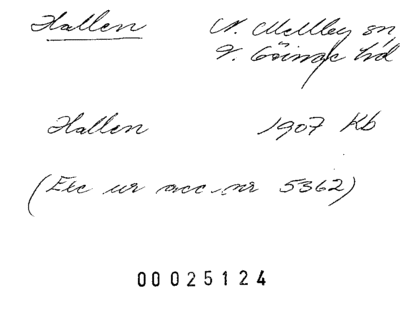 Hallen N. Mellby sn,
V. Göinge hd
Hallen 1907 Kb
(Exc ur acc. nr 5362)
00025124